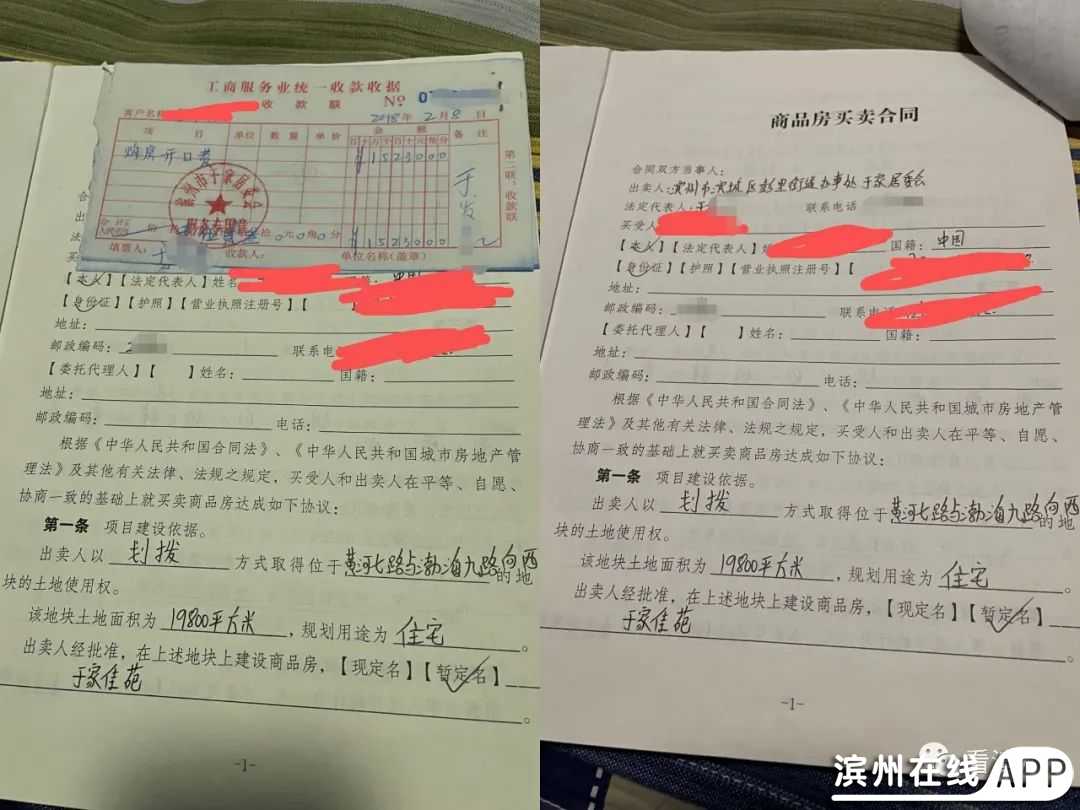 工商服务业统一收款收据
收 款 联 No 0
客户名称 2018年2月8日
项 目 单位 数量 单价 金 额 备注
百十万千百十元角分
购房开口费 ¥1523000
滨州市于家居委会
财务专用章
拾0元0角0分 ¥1523000
填票人: 收款人: 单位名称(盖章)
第二联:收款联
【本人】【法定代表人】姓名 国籍: 中国
【身份证】【护照】【营业执照注册号】【
地址:
邮政编码: 2 联系电
【委托代理人】【 】姓名: 国籍:
地址:
邮政编码: 电话:
根据《中华人民共和国合同法》、《中华人民共和国城市房地产管
理法》及其他有关法律、法规之规定,买受人和出卖人在平等、自愿、
协商一致的基础上就买卖商品房达成如下协议:
第一条 项目建设依据。
出卖人以 划拨 方式取得位于 黄河七路与渤海九路向西 的地
块的土地使用权。
该地块土地面积为 19800平方米 ,规划用途为 住宅 。
出卖人经批准,在上述地块上建设商品房,【现定名】【暂定名】
于家佳苑 。
-1-
商品房买卖合同
合同双方当事人:
出卖人:滨州市滨城区彭里街道办事处于家居委会
法定代表人:于 联系电话
买受人
【本人】【法定代表人】姓 国籍: 中国
【身份证】【护照】【营业执照注册号】【
地址:
邮政编码: 联系电
【委托代理人】【 】姓名: 国籍:
地址:
邮政编码: 电话:
根据《中华人民共和国合同法》、《中华人民共和国城市房地产管
理法》及其他有关法律、法规之规定,买受人和出卖人在平等、自愿、
协商一致的基础上就买卖商品房达成如下协议:
第一条 项目建设依据。
出卖人以 划拨 方式取得位于 黄河七路与渤海九路向西 的地
块的土地使用权。
该地块土地面积为 19800平方米 ,规划用途为 住宅 。
出卖人经批准,在上述地块上建设商品房,【现定名】【暂定名】
于家佳苑 。
-1-
滨州在线 APP